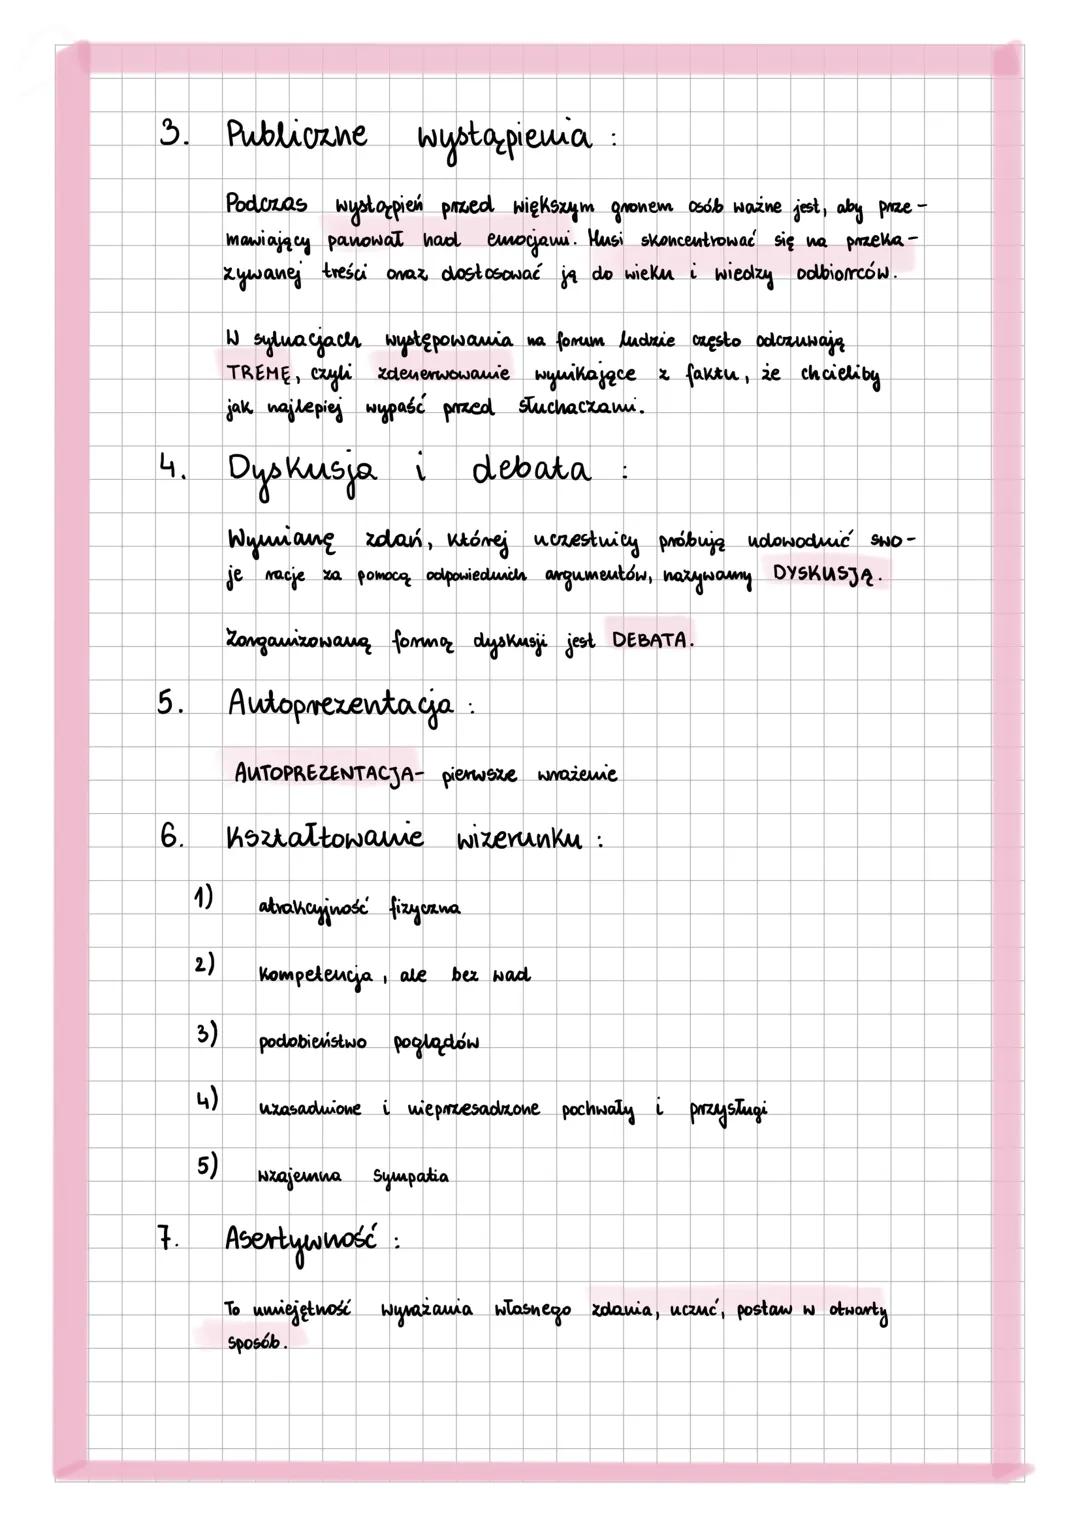 3. Publiczne wystąpienia :
Podczas wystąpień przed większym gronem osób ważne jest, aby prze-
mawiający panował nad emocjami. Musi skoncentrować się na przeka-
zywanej treści oraz dostosować ją do wieku i wiedzy odbiorców.
W sytuacjach występowania na forum ludzie często odczuwają
TREMĘ, czyli zdenerwowanie wynikające z faktu, że chcieliby
jak najlepiej wypaść przed słuchaczami.
4. Dyskusja i debata :
Wymianę zdań, której uczestnicy próbują udowodnić swo-
je racje za pomocą odpowiednich argumentów, nazywamy DYSKUSJĄ.
Zorganizowaną formą dyskusji jest DEBATA.
5. Autoprezentacja :
AUTOPREZENTACJA- pierwsze wrażenie
6. Kształtowanie wizerunku :
1) atrakcyjność fizyczna
2) kompetencja, ale bez wad
3) podobieństwo poglądów
4) uzasadnione i nieprzesadzone pochwały i przysługi
5) wzajemna sympatia
7. Asertywność :
To umiejętność wyrażania własnego zdania, uczuć, postaw w otwarty
sposób.